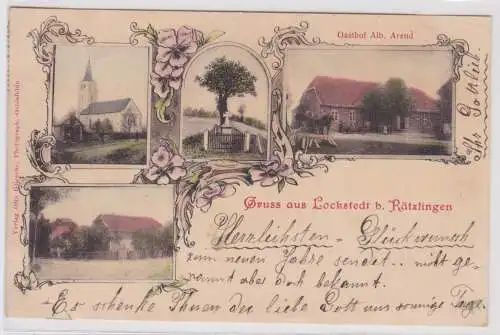 Gasthof Alb. Arend
Gruss aus Lockstedt b. Rätzlingen
Herzlichsten Glückwunsch
zum neuen Jahre sendet nicht ge-
nannt aber doch bekannt.
Es schenke Ihnen der liebe Gott nur sonnige Tage.
Ihr Gottlieb.
Verlag Photograph, Oebisfelde